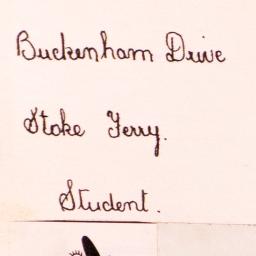 Buckenham Drive
Stoke Ferry.
Student.